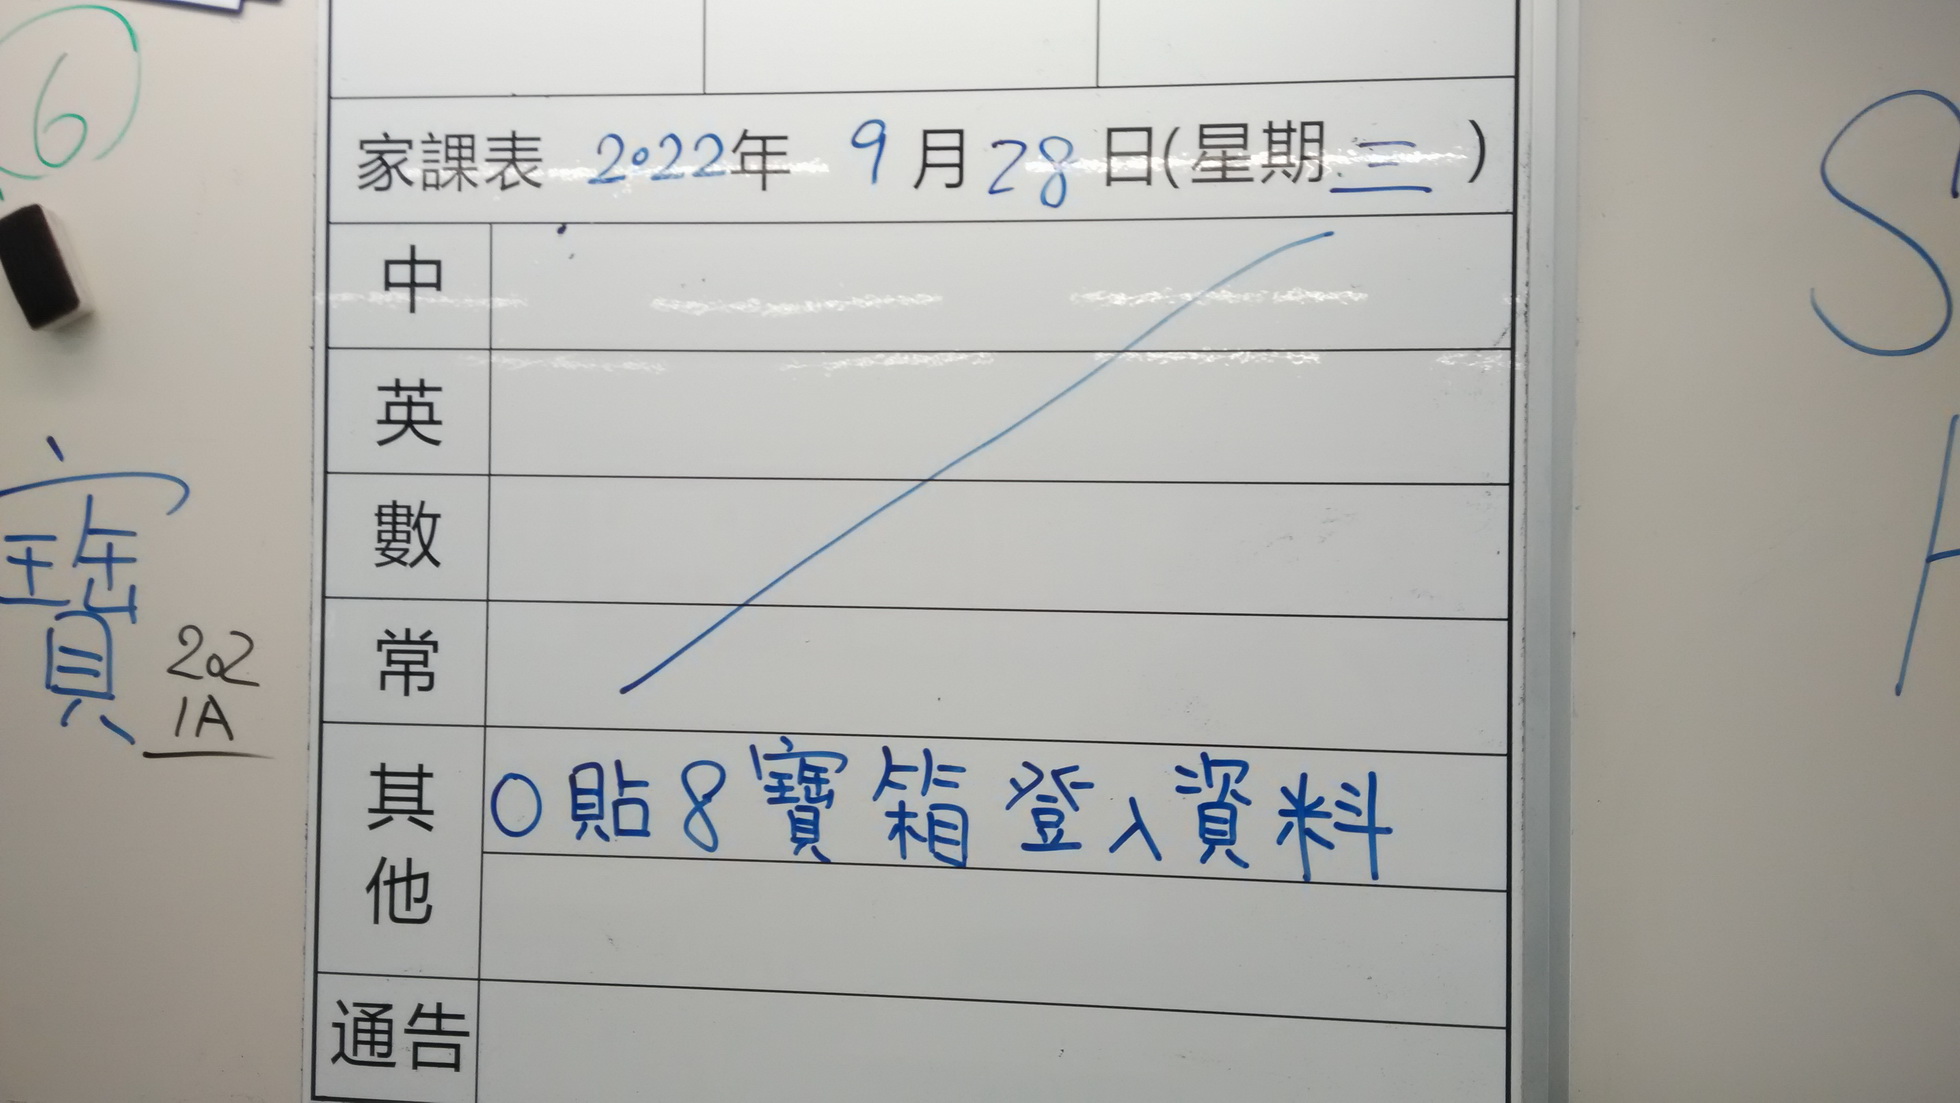 6
家課表 2022年 9月28日(星期三)
中
英
數
常
其他
O貼8寶箱登入資料
通告
寶
202
1A
S